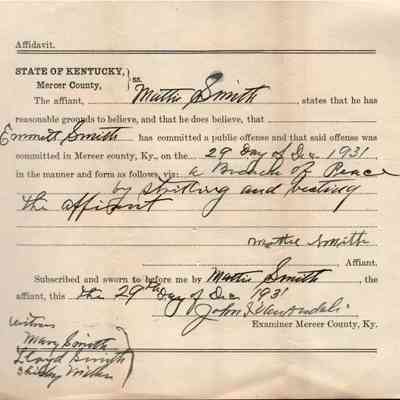 Affidavit.
STATE OF KENTUCKY, } ss.
Mercer County,
The affiant, Mattie Smith, states that he has
reasonable grounds to believe, and that he does believe, that
Emmett Smith has committed a public offense and that said offense was
committed in Mercer county, Ky., on the 29 Day of Dec 1931
in the manner and form as follows, viz: a Breach of Peace
by striking and beating
the affiant
Mattie Smith
Affiant.
Subscribed and sworn to before me by Mattie Smith, the
affiant, this the 29th Day of Dec 1931
John
Examiner Mercer County, Ky.
witness
Mary Smith
Lloyd Smith